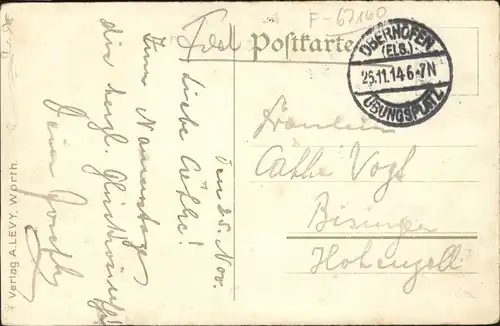 F-67160
Postkarte
OBERHOFEN
(ELS.)
25.11.14 6-7N
ÜBUNGSPLATZ
Den 25. Nov.
Liebe Käthe!
Zum Namenstage
die herzl. Glückwünsche
Dein
Fräulein
Käthe Vogt
Bisingen
Hohenzoll
Verlag A. LEVY, Wörth.